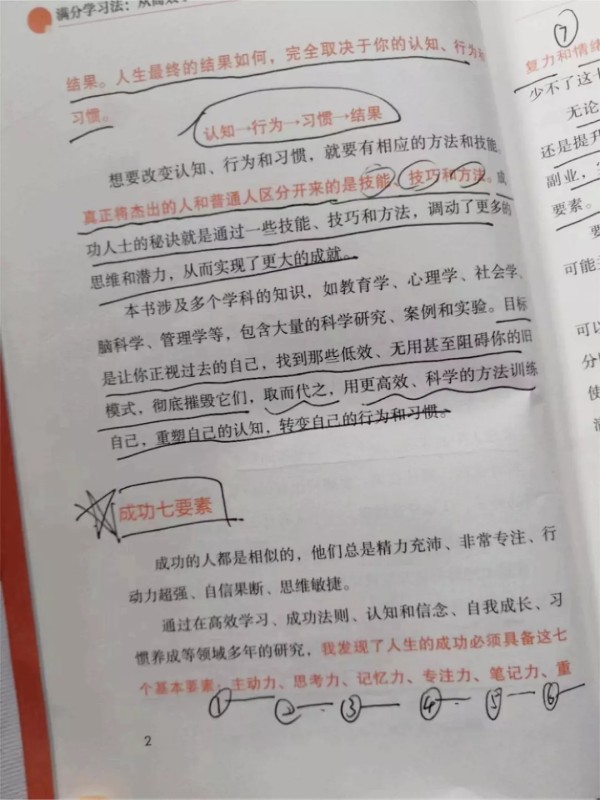 满分学习法：从高效
结果。人生最终的结果如何，完全取决于你的认知、行为和
习惯。
认知→行为→习惯→结果
想要改变认知、行为和习惯，就要有相应的方法和技能，
真正将杰出的人和普通人区分开来的是技能、技巧和方法。成
功人士的秘诀就是通过一些技能、技巧和方法，调动了更多的
思维和潜力，从而实现了更大的成就。
本书涉及多个学科的知识，如教育学、心理学、社会学、
脑科学、管理学等，包含大量的科学研究、案例和实验。目标
是让你正视过去的自己，找到那些低效、无用甚至阻碍你的旧
模式，彻底摧毁它们，取而代之，用更高效、科学的方法训练
自己，重塑自己的认知，转变自己的行为和习惯。
成功七要素
成功的人都是相似的，他们总是精力充沛、非常专注、行
动力超强、自信果断、思维敏捷。
通过在高效学习、成功法则、认知和信念、自我成长、习
惯养成等领域多年的研究，我发现了人生的成功必须具备这七
个基本要素：主动力、思考力、记忆力、专注力、笔记力、重
① ② ③ ④ ⑤ ⑥
2
⑦
复力和情绪
少不了这十
无论
还是提升
副业，
要素。
要
可能
可以
分
使